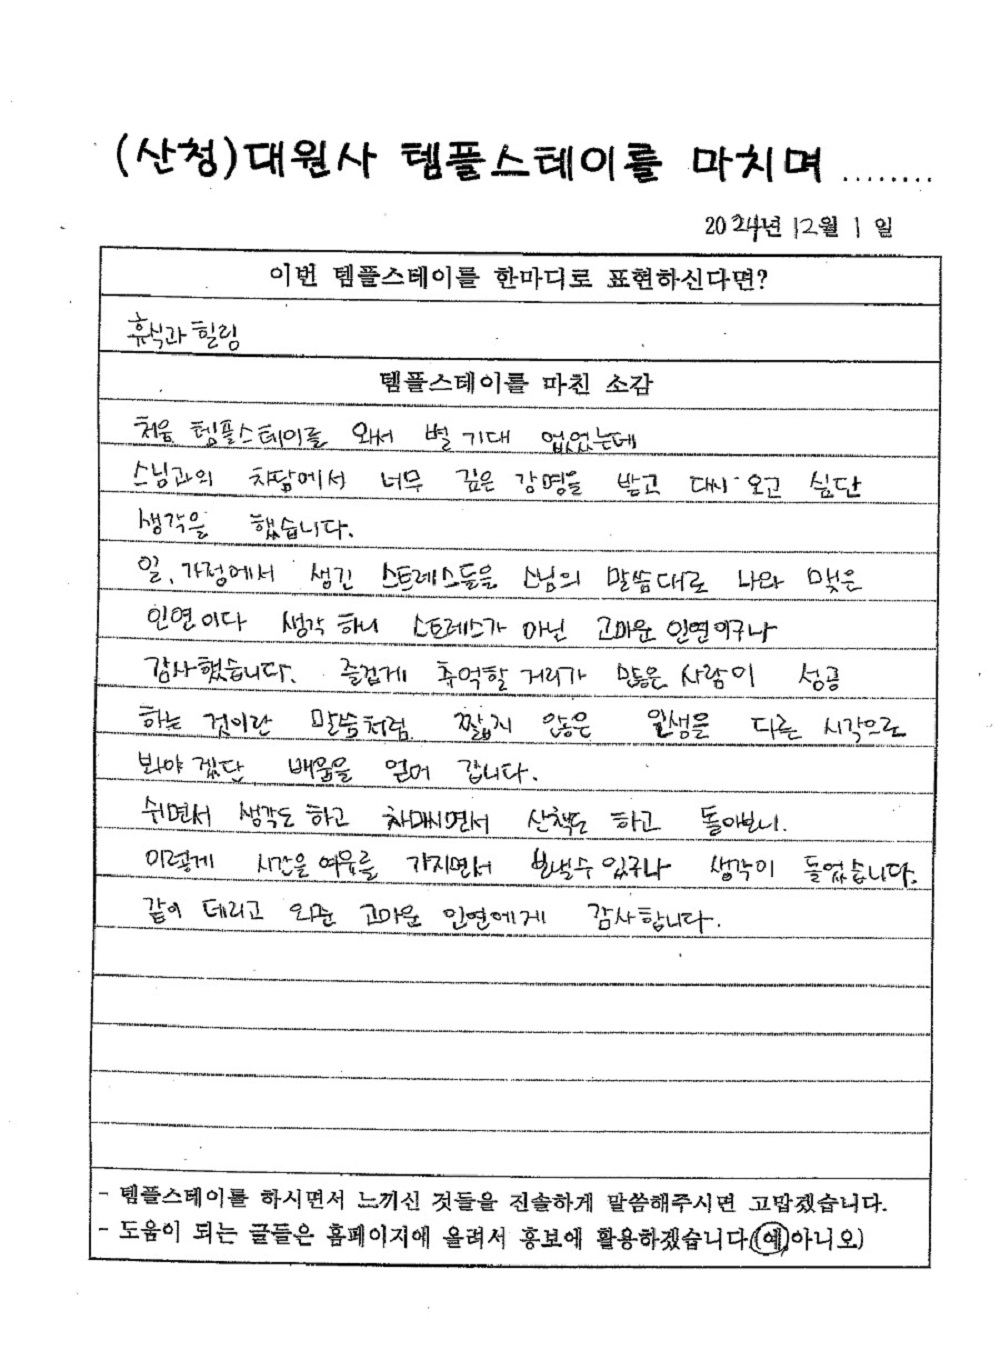 (산청)대원사 템플스테이를 마치며 ........
2024년 12월 1일
이번 템플스테이를 한마디로 표현하신다면?
휴식과 힐링
템플스테이를 마친 소감
처음 템플스테이를 와서 별 기대 없었는데
스님과의 차담에서 너무 깊은 감명을 받고 다시 오고 싶단
생각을 했습니다.
일, 가정에서 생긴 스트레스들을 스님의 말씀대로 나와 맺은
인연이다 생각 하니 스트레스가 아닌 고마운 인연이구나
감사했습니다. 즐겁게 추억할 거리가 많은 사람이 성공
하는 것이란 말씀처럼 짧지 않은 인생을 다른 시각으로
봐야 겠단 배움을 얻어 갑니다.
쉬면서 생각도 하고 차마시면서 산책도 하고 돌아보니.
이렇게 시간을 여유를 가지면서 보낼수 있구나 생각이 들었습니다.
같이 데리고 와준 고마운 인연에게 감사합니다.
- 템플스테이를 하시면서 느끼신 것들을 진솔하게 말씀해주시면 고맙겠습니다.
- 도움이 되는 글들은 홈페이지에 올려서 홍보에 활용하겠습니다(예,아니오)